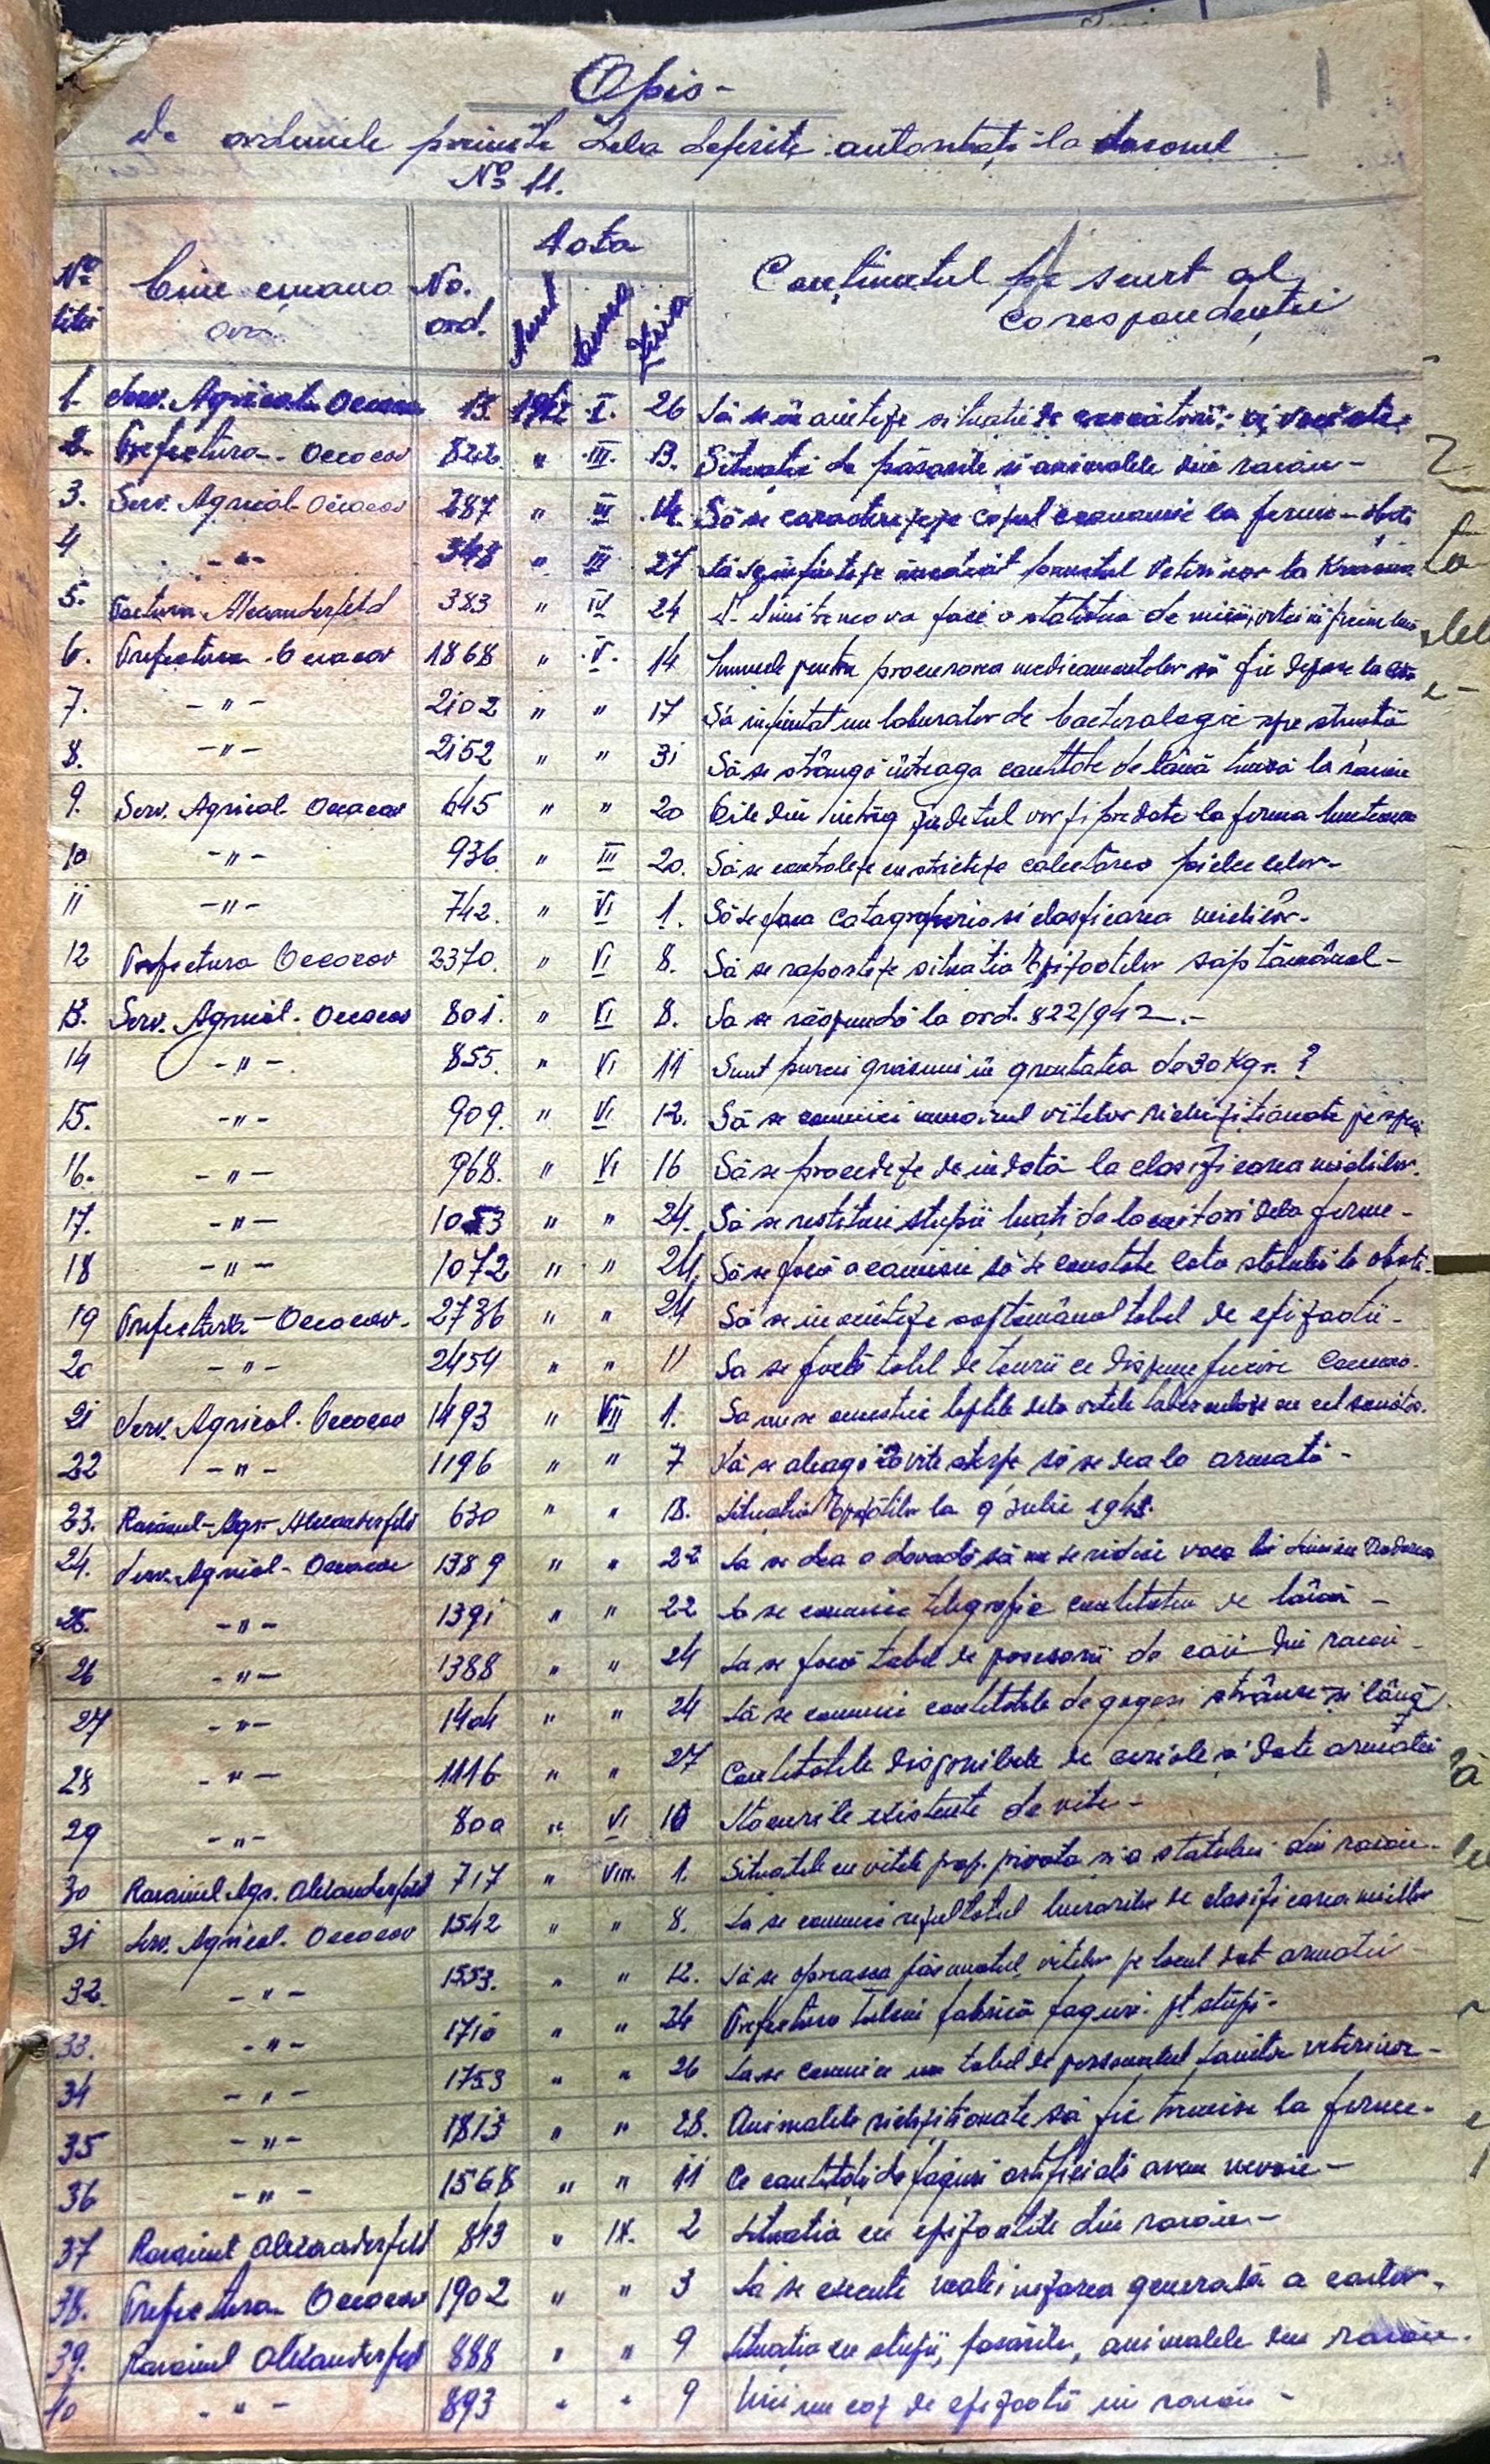 1
Opis-
de ordinele primite dela diferite autorități la dosarul
No 11.
No titei
Cine emană
No. ord.
Data
Anul
Luna
Ziua
Conținutul pe scurt al corespondenței
1. Serv. Agricol Oceacov 13. 1942 I. 26 Să se înainteze situație de
2. Prefectura Oceacov 822 " III. 13. Situație de păsările și animalele din raion-
3. Serv. Agricol Oceacov 287 " III 14. Să se caracterizeze economic la ferme-
4 -"- 348 " III 27 Să se înființeze imediat punctul Veterinar la
5. Alexanderfeld 383 " IV 24 va face o statistică de
6. Prefectura Oceacov 1868 " V. 14 Sumele pentru procurarea medicamentelor să fie depuse la
7. -"- 2102 " " 17 S'a înființat un laborator de bacteriologie
8. -"- 2152 " " 31 Să se strângă întreaga cantitate de lână tunsă la raion
9. Serv. Agricol Oceacov 645 " " 20 Oile din întreg județul vor fi predate la ferma
10 -"- 936 " III 20. Să se controleze cu strictețe colectarea pieilor
11 -"- 742. " VI 1. Să se facă catagrafierea si clasificarea mieilor-
12 Prefectura Oceacov 2370. " VI 8. Să se raporteze situatia Epizootilor săptămânal-
13. Serv. Agricol. Oceacov 801. " VI 8. Sa se răspundă la ord. 822/942.-
14 -"- 855. " VI 11 Sunt purcei grăsuni în greutatea de 30 Kgr. ?
15. -"- 909. " VI 12. Să se comunici numărul vitelor richiziționate pe
16. -"- 968. " VI 16 Să se procedeze de îndată la clasificarea mieilor.
17. -"- 1053 " " 24. Să se restitui stupii luați de locuitori dela ferme-
18 -"- 1072 " " 24, Să se facă o comisie să se constate cota statului la obști-
19 Prefectura-Oceacov- 2736 " " 24 Să se înainteze săptămânal tabel de epizootii-
20 -"- 2454 " " 11 Sa se facă tabel de taurii ce dispune
21 Serv. Agricol. Oceacov 1493 " VII 1. Sa nu se amestice laptele dela vitele tuberculoase cu cel sănătos.
22 -"- 1196 " " 7 Să se aleagă vite sterpe să se dea la armată-
23. Raionul-Agr-Alexanderfeld 630 " " 13. Situatia Epizotilor la 9 Iulie 1942.
24. Serv. Agricol- Oceacov 1389 " " 22 Sa se dea o dovadă să nu se ridice vaca lui
25. -"- 1391 " " 22 Sa se comunice telegrafic cantitatea de lână-
26 -"- 1388 " " 24 Sa se facă tabel de posesorii de caii din raion-
27 -"- 1404 " " 24 Să se comunici cantitatile de gogoși strânse și lână.
28 -"- 1116 " " 27 Cantitatile disponibile de
29 -"- 800 " VI 10 Stocurile existente de vite-
30 Raionul Agr. Alexanderfeld 717 " VIII. 1. Situatile cu vitele prop. privata si a statului din raion-
31 Serv. Agricol. Oceacov 1542 " " 8. Sa se comunici rezultatul lucrarilor de clasificarea mieilor
32. -"- 1553. " " 12. Să se oprească pășunatul vitelor pe locul dat armatei-
33. -"- 1710 " " 24 Prefectura Tulcei fabrică faguri pt. stupi-
34 -"- 1753 " " 26 Sa se comunice un tabel de personalul sanitar veterinar-
35 -"- 1813 " " 28. Animalele richiziționate să fie trimise la ferme-
36 -"- 1568 " " 11 Ce cantități de faguri artificiali avem nevoie-
37 Raionul Alexanderfeld 843 " IX. 2 Situatia cu epizootile din raion-
38. Prefectura Oceacov 1902 " " 3 Să se execute maleinizarea generală a cailor-
39. Raionul Alexanderfeld 888 " " 9 Situația cu stupii, pasările, animalele din raion.
40 -"- 893 " " 9 Nici un caz de epizootii in raion-